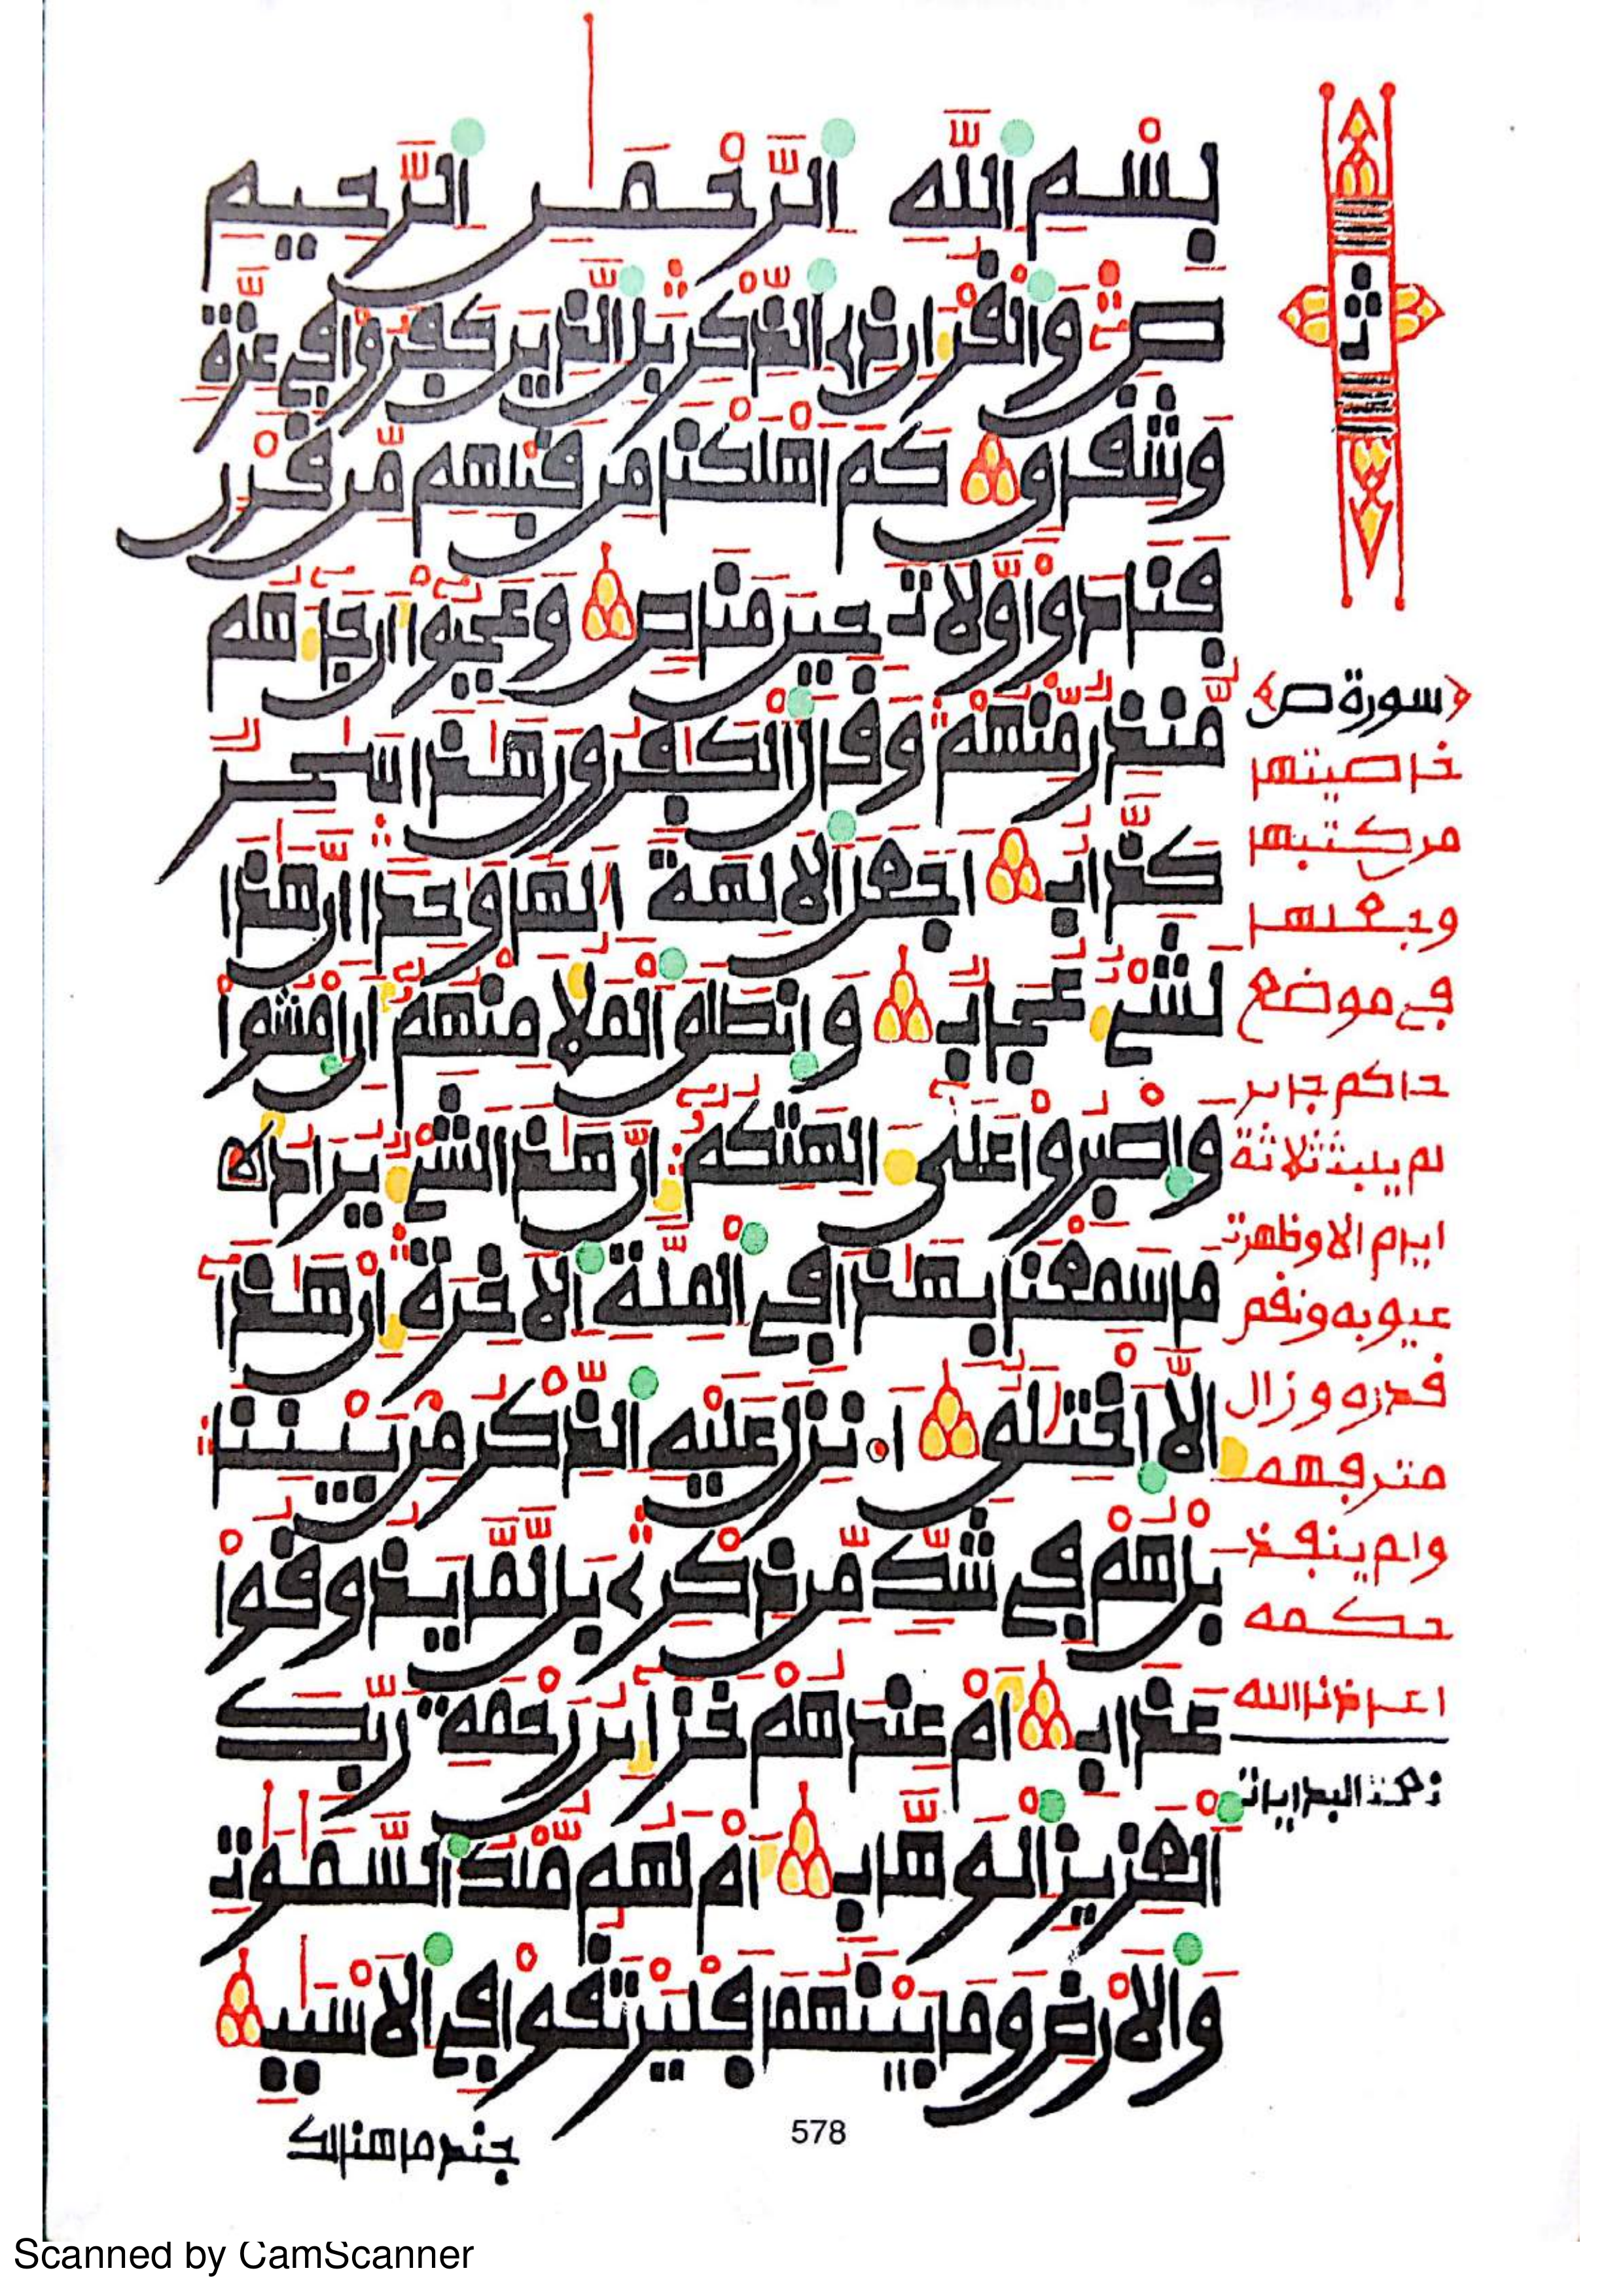 بِسْمِ اللَّهِ الرَّحْمَٰنِ الرَّحِيمِ
صٓ وَالْقُرْءَانِ ذِی الذِّكْرِ بَلِ الَّذِينَ كَفَرُوا فِي عِزَّةٍ
وَشِقَاقٍ كَمْ أَهْلَكْنَا مِن قَبْلِهِم مِّن قَرْنٍ
فَنَادَوا وَّلَاتَ حِينَ مَنَاصٍ وَعَجِبُوٓا أَن جَآءَهُم
مُّنذِرٌ مِّنْهُمْ وَقَالَ الْكَٰفِرُونَ هَٰذَا سَٰحِرٌ
كَذَّابٌ أَجَعَلَ الْأَلِهَةَ إِلَٰهًا وَٰحِدًا إِنَّ هَٰذَا
لَشَيْءٌ عُجَابٌ وَانطَلَقَ الْمَلَأُ مِنْهُمُٓ أَنِ امْشُوا
وَاصْبِرُوا عَلَىٰٓ ءَالِهَتِكُمُٓ إِنَّ هَٰذَا لَشَيْءٌ يُرَادُ
مَا سَمِعْنَا بِهَٰذَا فِي الْمِلَّةِ الْأَخِرَةِ إِنْ هَٰذَآ
إِلَّا اخْتِلَٰقٌ أَ.نزِلَ عَلَيْهِ الذِّكْرُ مِنۢ بَيْنِنَا
بَلْ هُمْ فِي شَكٍّ مِّن ذِكْرِی بَل لَّمَّا يَذُوقُوا
عَذَابِ أَمْ عِندَهُمْ خَزَآئِنُ رَحْمَةِ رَبِّكَ
الْعَزِيزِ الْوَهَّابِ أَمْ لَهُم مُّلْكُ السَّمَٰوَٰتِ
وَالْأَرْضِ وَمَا بَيْنَهُمَا فَلْيَرْتَقُوا فِي الْأَسْبَٰبِ
جند ما هنالك
578
ثمن
سورة ص
خاصيتها
من كتبها
وجعلها
في موضع
حاكم جاير
لم يلبث ثلاثة
ايام الا وظهرت
عيوبه ونقم
قدره وزال
وام ينفذ
حكمه
Scanned by CamScanner